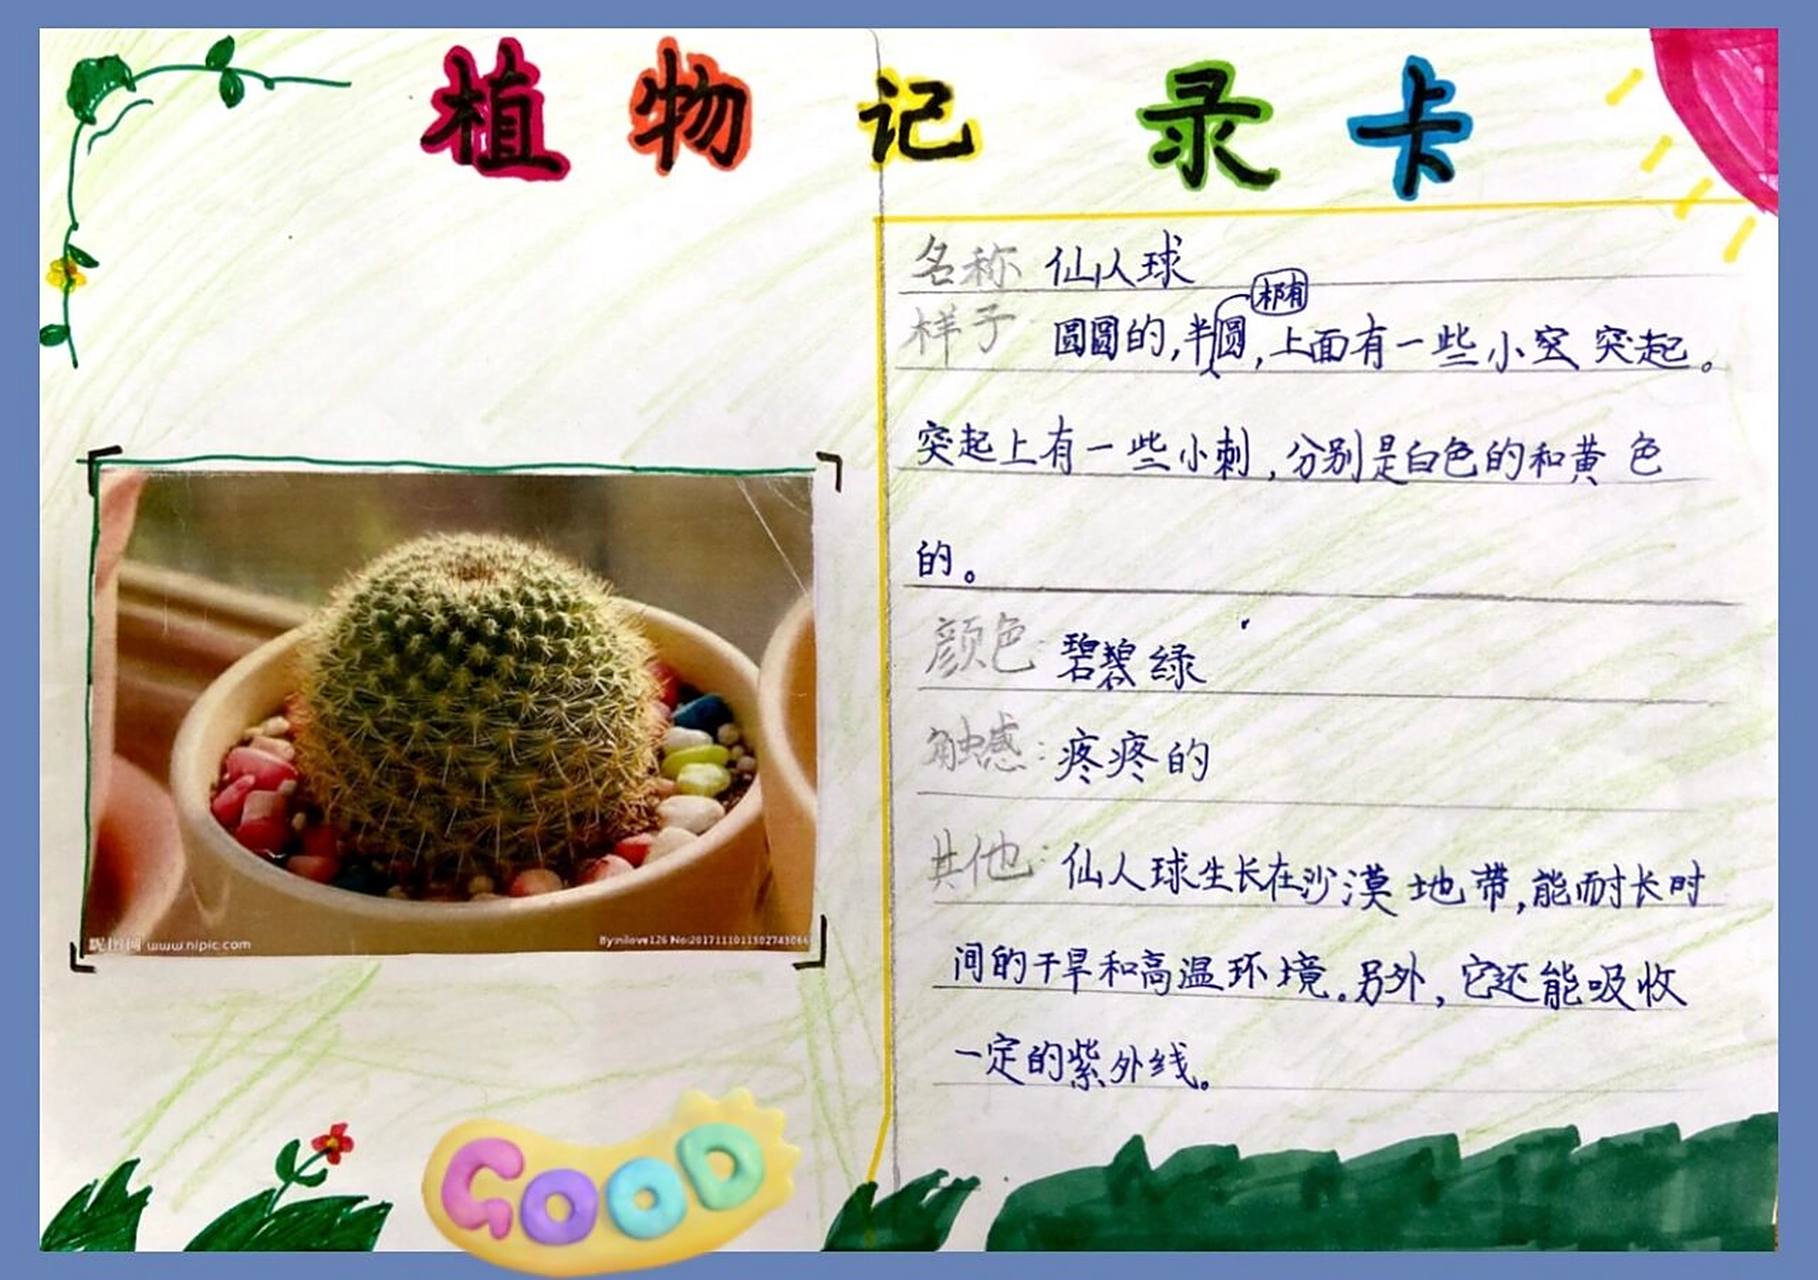 植物记录卡
名称 仙人球
样子 圆圆的,半椭圆,上面有一些小突 突起。
突起上有一些小刺,分别是白色的和黄色
的。
颜色: 碧碧绿
触感: 疼疼的
其他: 仙人球生长在沙漠地带,能耐长时
间的干旱和高温环境。另外,它还能吸收
一定的紫外线。
昵图网 www.nipic.com
By:nilove126
GOOD